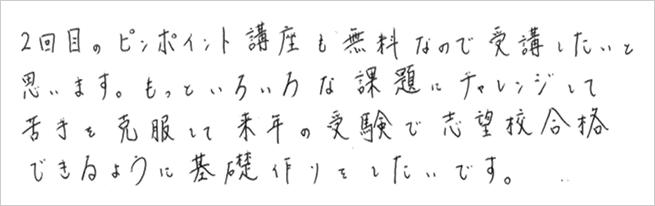 2回目のピンポイント講座も無料なので受講したいと
思います。もっといろいろな課題にチャレンジして
苦手を克服して来年の受験で志望校合格
できるように基礎作りをしたいです。